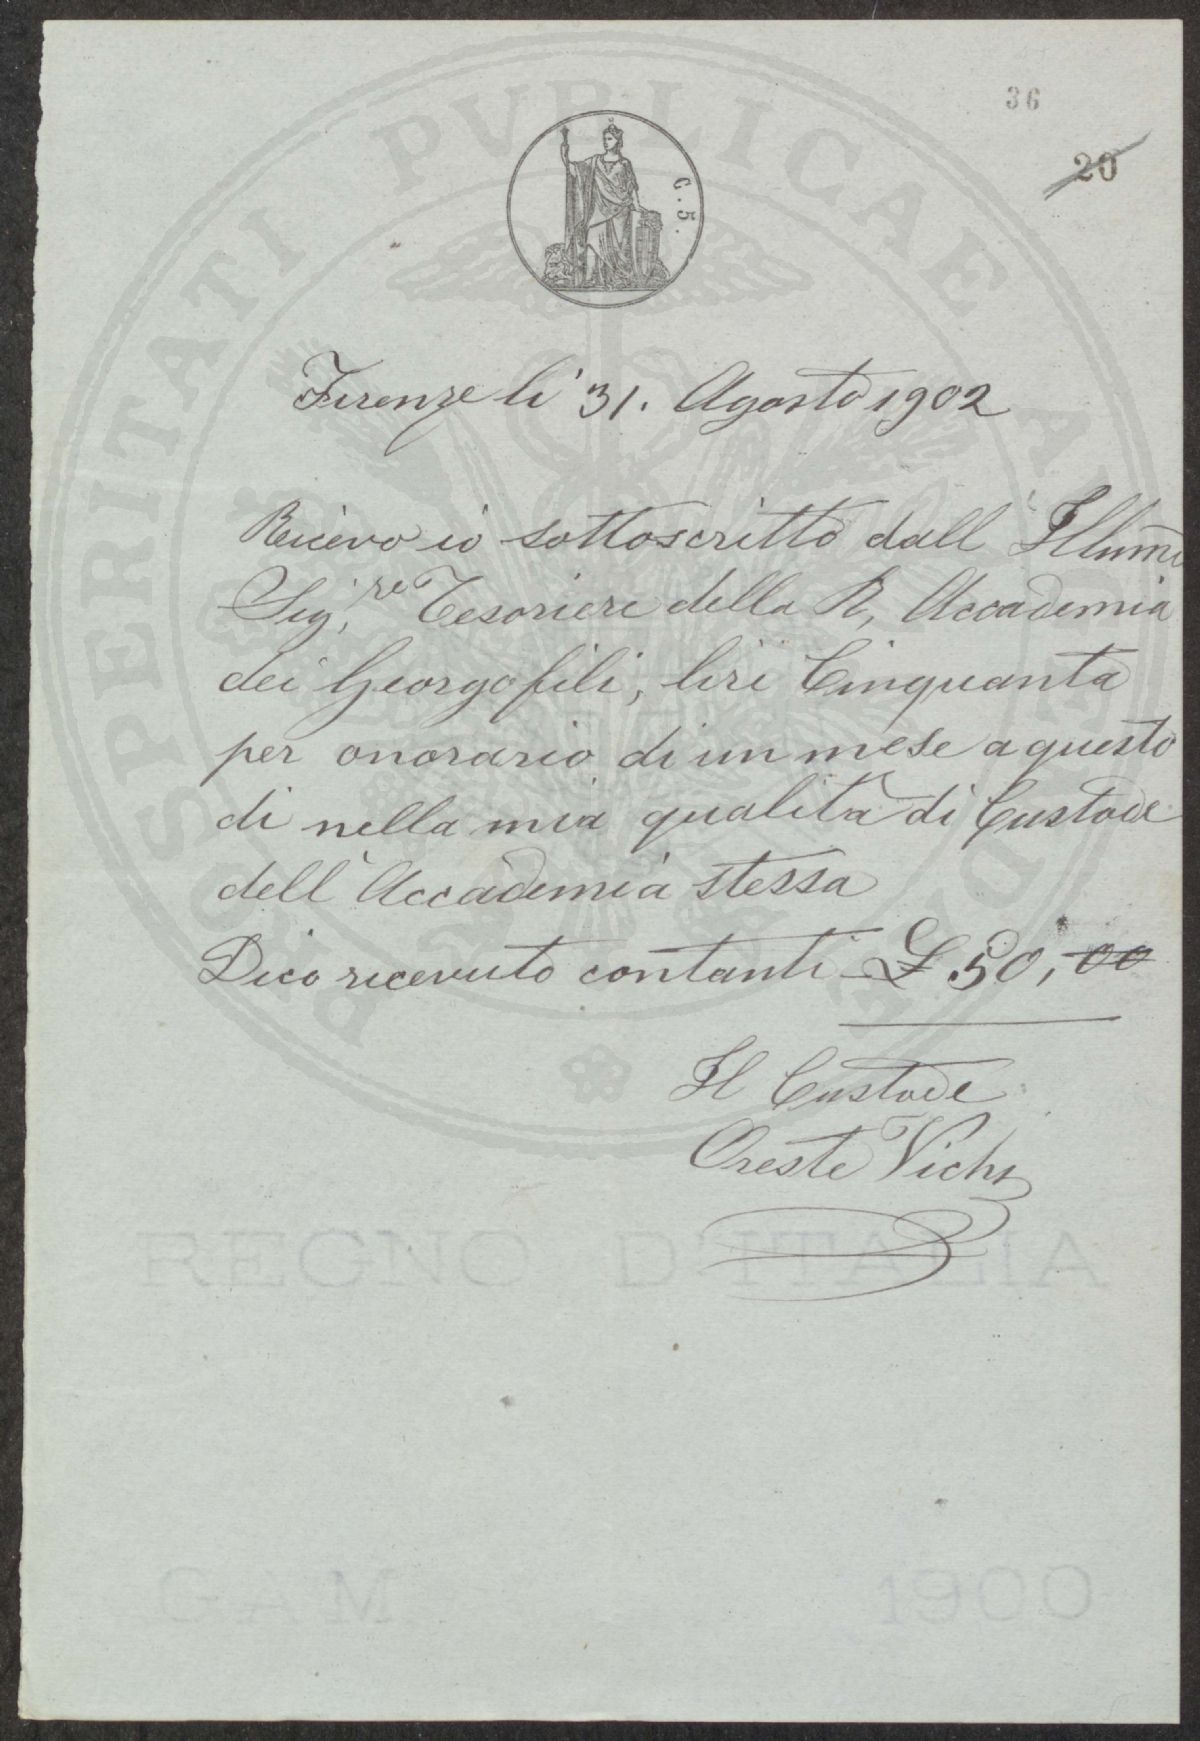 36
20
C. 5.
Firenze li 31. Agosto 1902
Ricevo io sottoscritto dall' Illumo
Sig.re Tesoriere della R. Accademia
dei Georgofili, liri Cinquanta
per onorario di un mese a questo
di nella mia qualità di Custode
dell' Accademia stessa
Dico ricevuto contanti £ 50,00
Il Custode
Oreste Vichi
PROSPERITATI PVBLICAE AVGENDAE
REGNO D'ITALIA
GAM 1900